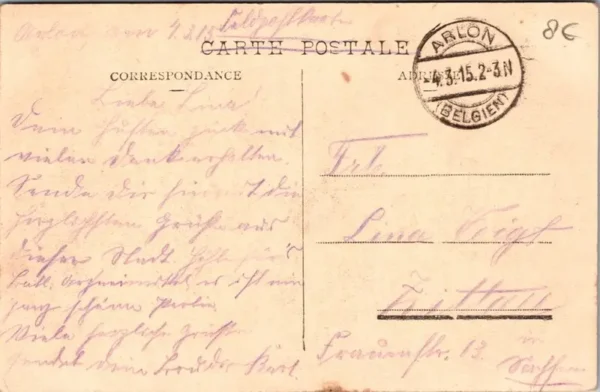 Arlon, den 4.3.15 Feldpostkarte
8€
CARTE POSTALE
CORRESPONDANCE
ADRESSE
ARLON
-4.3.15.2-3N
(BELGIEN)
Liebe Lina!
Dein mit
vielen Dank erhalten.
Sende Dir hiermit die
herzlichsten Grüße aus
dieser Stadt.
es ist ein
ganz schöne Partie
Viele herzliche Grüße
sendet Dein Bruder Kurt
Frl.
Lina Voigt
Zittau
Frauenstr. 13
Sachsen